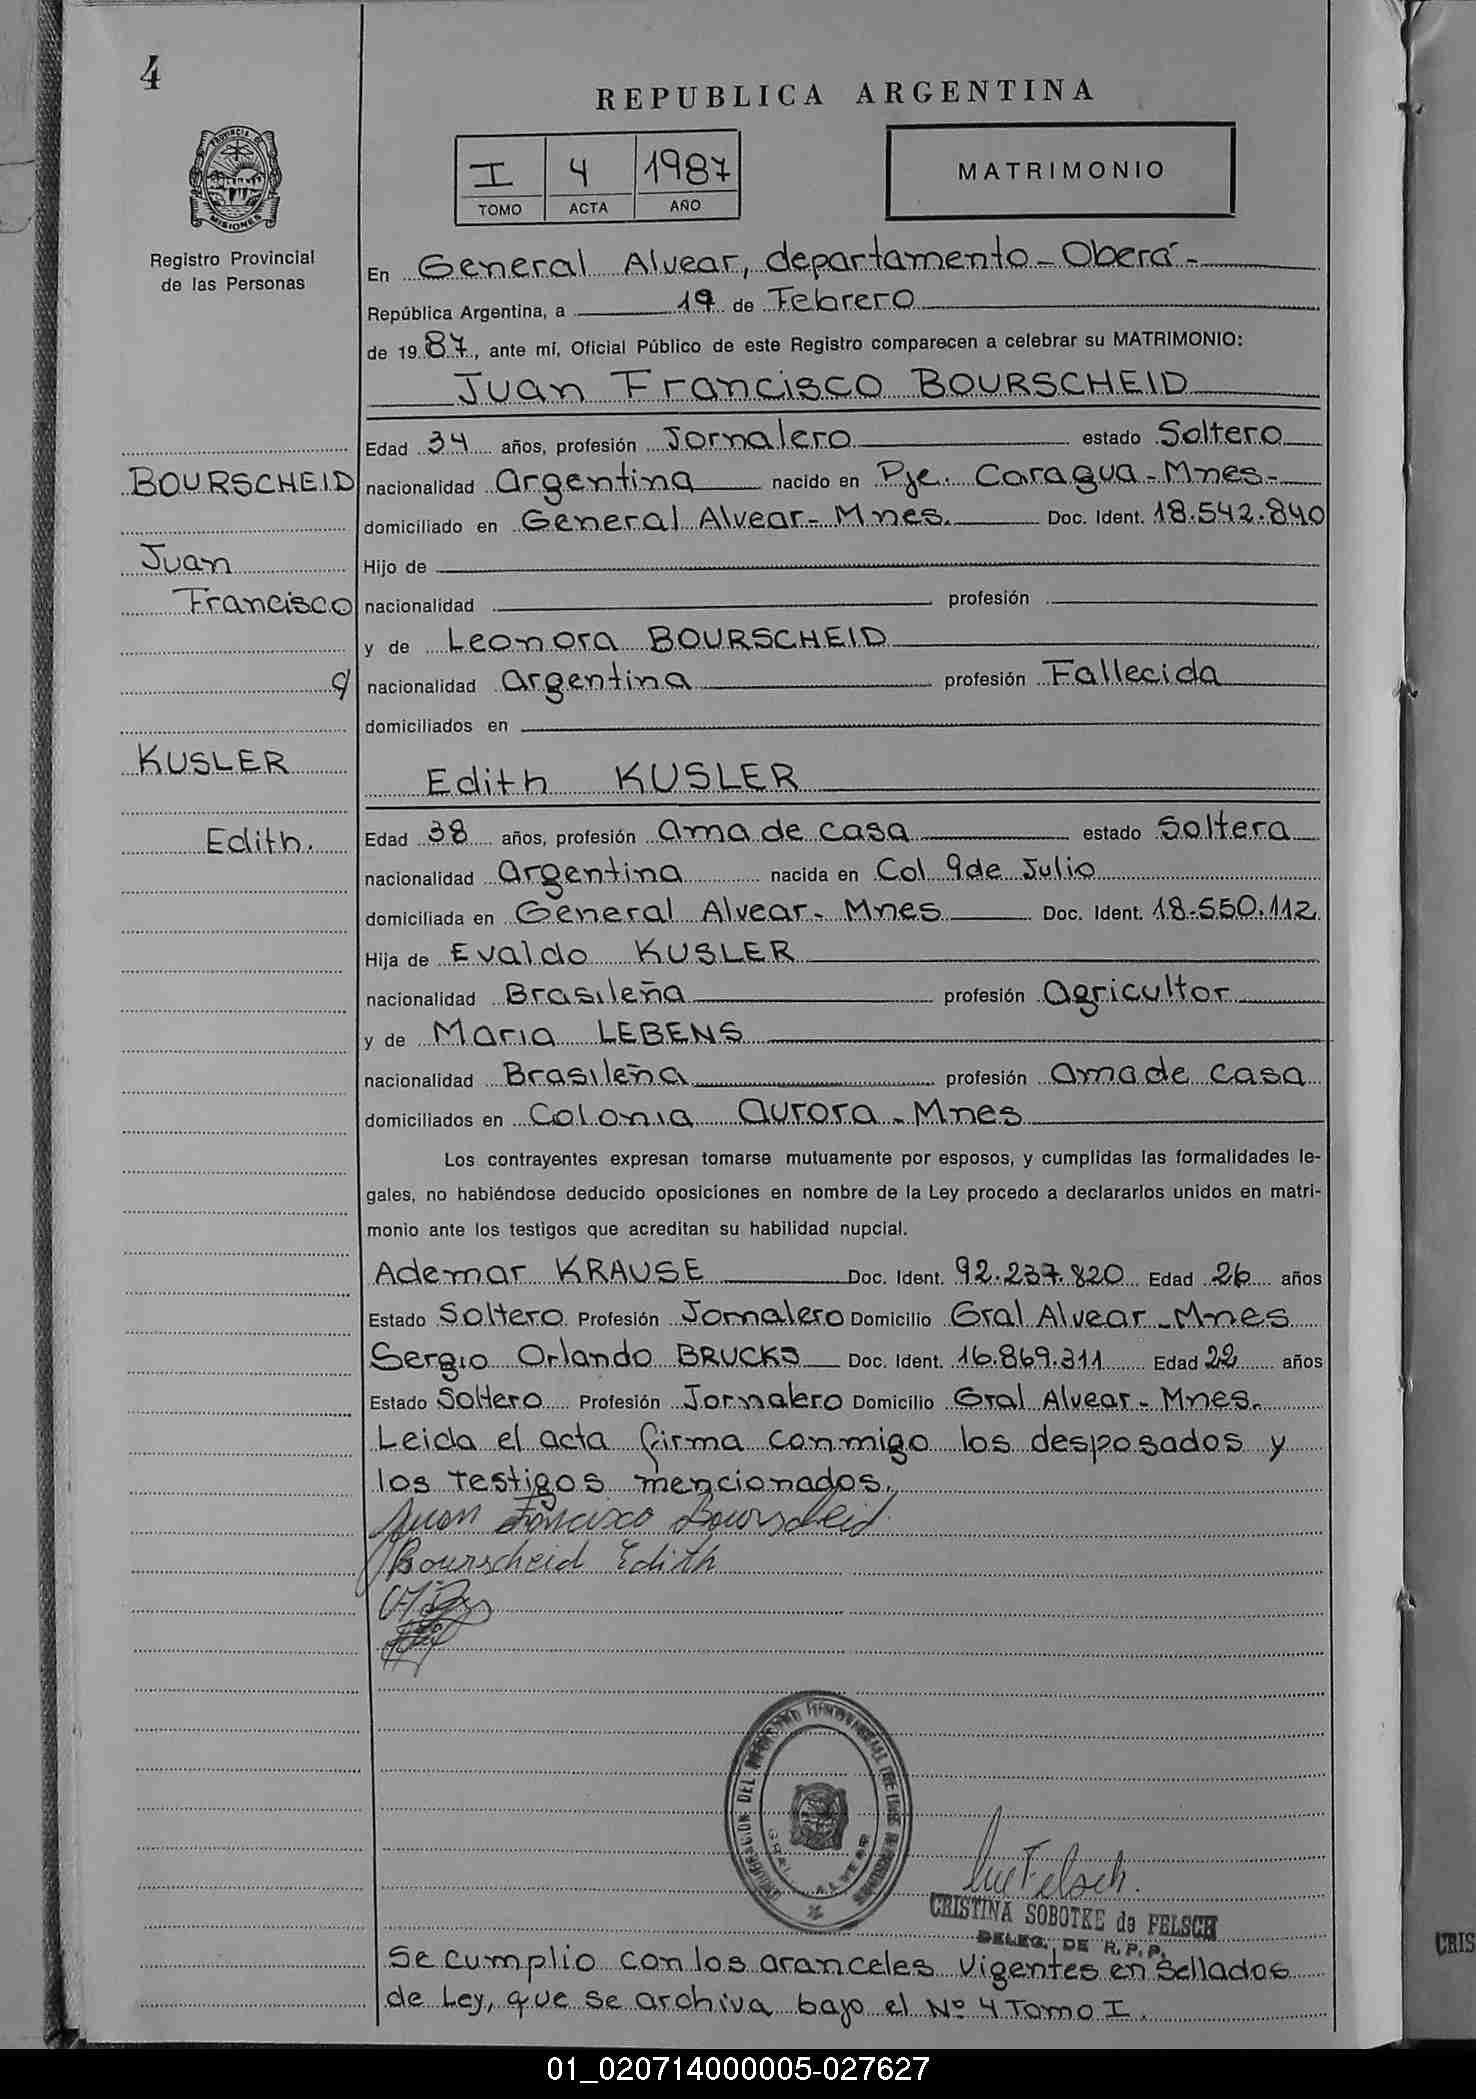 4
REPUBLICA ARGENTINA
I 4 1987
TOMO ACTA AÑO
MATRIMONIO
PROVINCIA DE
MISIONES
Registro Provincial
de las Personas
En General Alvear, departamento - Oberá -
República Argentina, a 19 de Febrero
de 1987, ante mí, Oficial Público de este Registro comparecen a celebrar su MATRIMONIO:
Juan Francisco BOURSCHEID
Edad 34 años, profesión Jornalero estado Soltero
BOURSCHEID
nacionalidad Argentina nacido en Pje. Caragua - Mnes -
domiciliado en General Alvear - Mnes. Doc. Ident. 18.542.840
Juan
Hijo de
Francisco
nacionalidad profesión
y de Leonora BOURSCHEID
c/
nacionalidad Argentina profesión Fallecida
domiciliados en
KUSLER
Edith KUSLER
Edith.
Edad 38 años, profesión ama de casa estado Soltera
nacionalidad Argentina nacida en Col 9 de Julio
domiciliada en General Alvear - Mnes Doc. Ident. 18.550.112
Hija de Evaldo KUSLER
nacionalidad Brasileña profesión Agricultor
y de Maria LEBENS
nacionalidad Brasileña profesión ama de casa
domiciliados en Colonia Aurora - Mnes
Los contrayentes expresan tomarse mutuamente por esposos, y cumplidas las formalidades le-
gales, no habiéndose deducido oposiciones en nombre de la Ley procedo a declararlos unidos en matri-
monio ante los testigos que acreditan su habilidad nupcial.
Ademar KRAUSE Doc. Ident. 92.237.820 Edad 26 años
Estado Soltero Profesión Jornalero Domicilio Gral Alvear - Mnes
Sergio Orlando BRUCKS Doc. Ident. 16.869.311 Edad 22 años
Estado Soltero Profesión Jornalero Domicilio Gral Alvear - Mnes.
Leida el acta firma conmigo los desposados y
los testigos mencionados.
Juan Francisco Bourscheid
Bourscheid Edith
GRAL ALVEAR
Felsch.
CRISTINA SOBOTKE de FELSCH
DELEG. DE R.P.P.
CRIS
Se cumplio con los aranceles vigentes en Sellados
de Ley, que se archiva bajo el Nº 4 Tomo I.
01_020714000005-027627